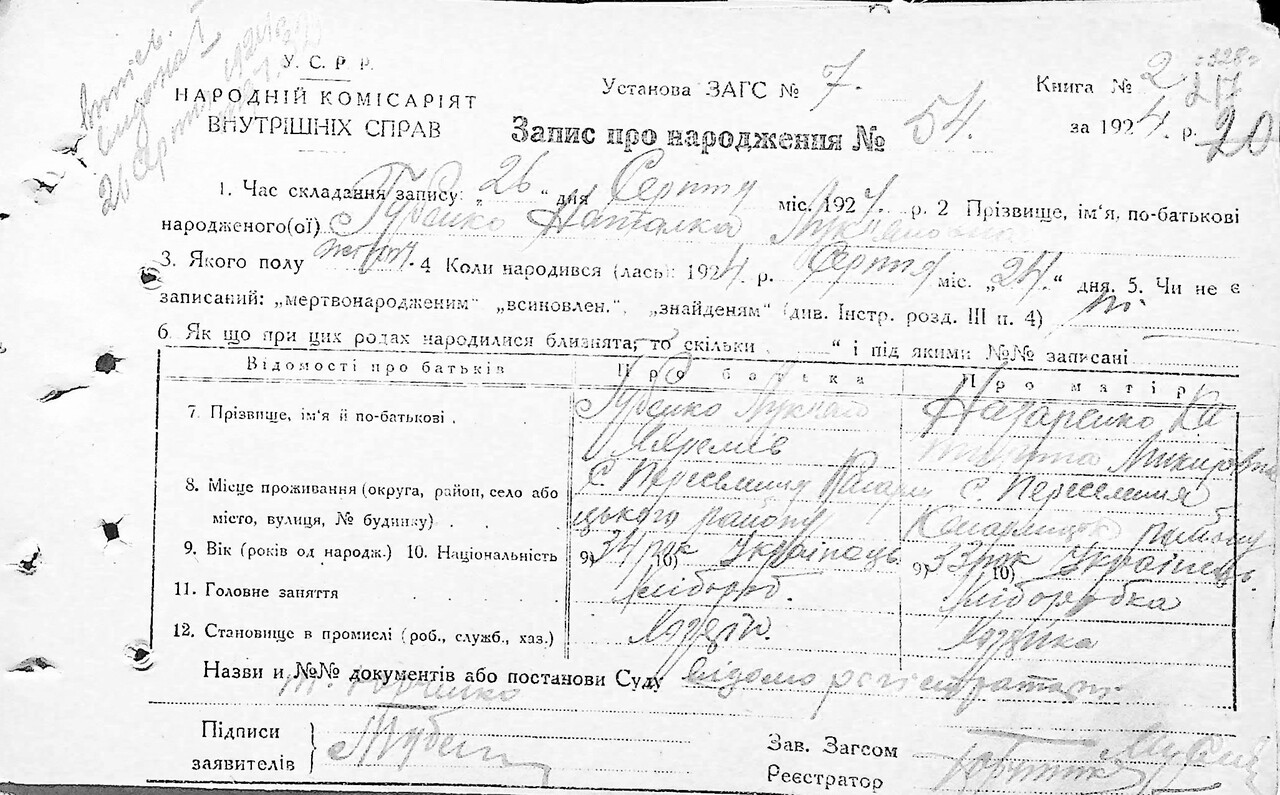 Витяг
видано
26 серпня
:328:
У. С. Р. Р.
Установа ЗАГС № 7.
Книга № 2
217
НАРОДНІЙ КОМІСАРІЯТ
ВНУТРІШНІХ СПРАВ
Запис про народження № 54.
за 1924 р. 20
1. Час складання запису: „26“ дня Серпня міс. 1924 р. 2 Прізвище, ім'я, по-батькові
народженого(ої) Губенко Наталка Лукьяновна
3. Якого полу жіноч. 4 Коли народився (лась): 1924 р. Серпня міс. „24.“ дня. 5. Чи не є
записаний: „мертвонародженим“ „всиновлен.“, „знайденям“ (див. Інстр. розд. III п. 4) ні
6. Як що при цих родах народилися близнята, то скільки „ “ і під якими №№ записані
Відомості про батьків Про батька Про матір
7. Прізвище, ім'я й по-батькові . Губенко Лукьян Назаренко
Яхремів
8. Місце проживання (округа, район, село або С. Переселення Кагарли с. Переселення
місто, вулиця, № будинку) . . цького району Кагарлицьк. району
9. Вік (років од народж.) 10. Національність 9) 34 рок 10) Українець 9) 33 рок 10) Українець
11. Головне заняття . . . . хлібороб. хліборобка
12. Становище в промислі (роб., служб., хаз.)
Назви и №№ документів або постанови Суду відомо регістратору
Підписи
заявителів
Губенко
Зав. Загсом
Реєстратор